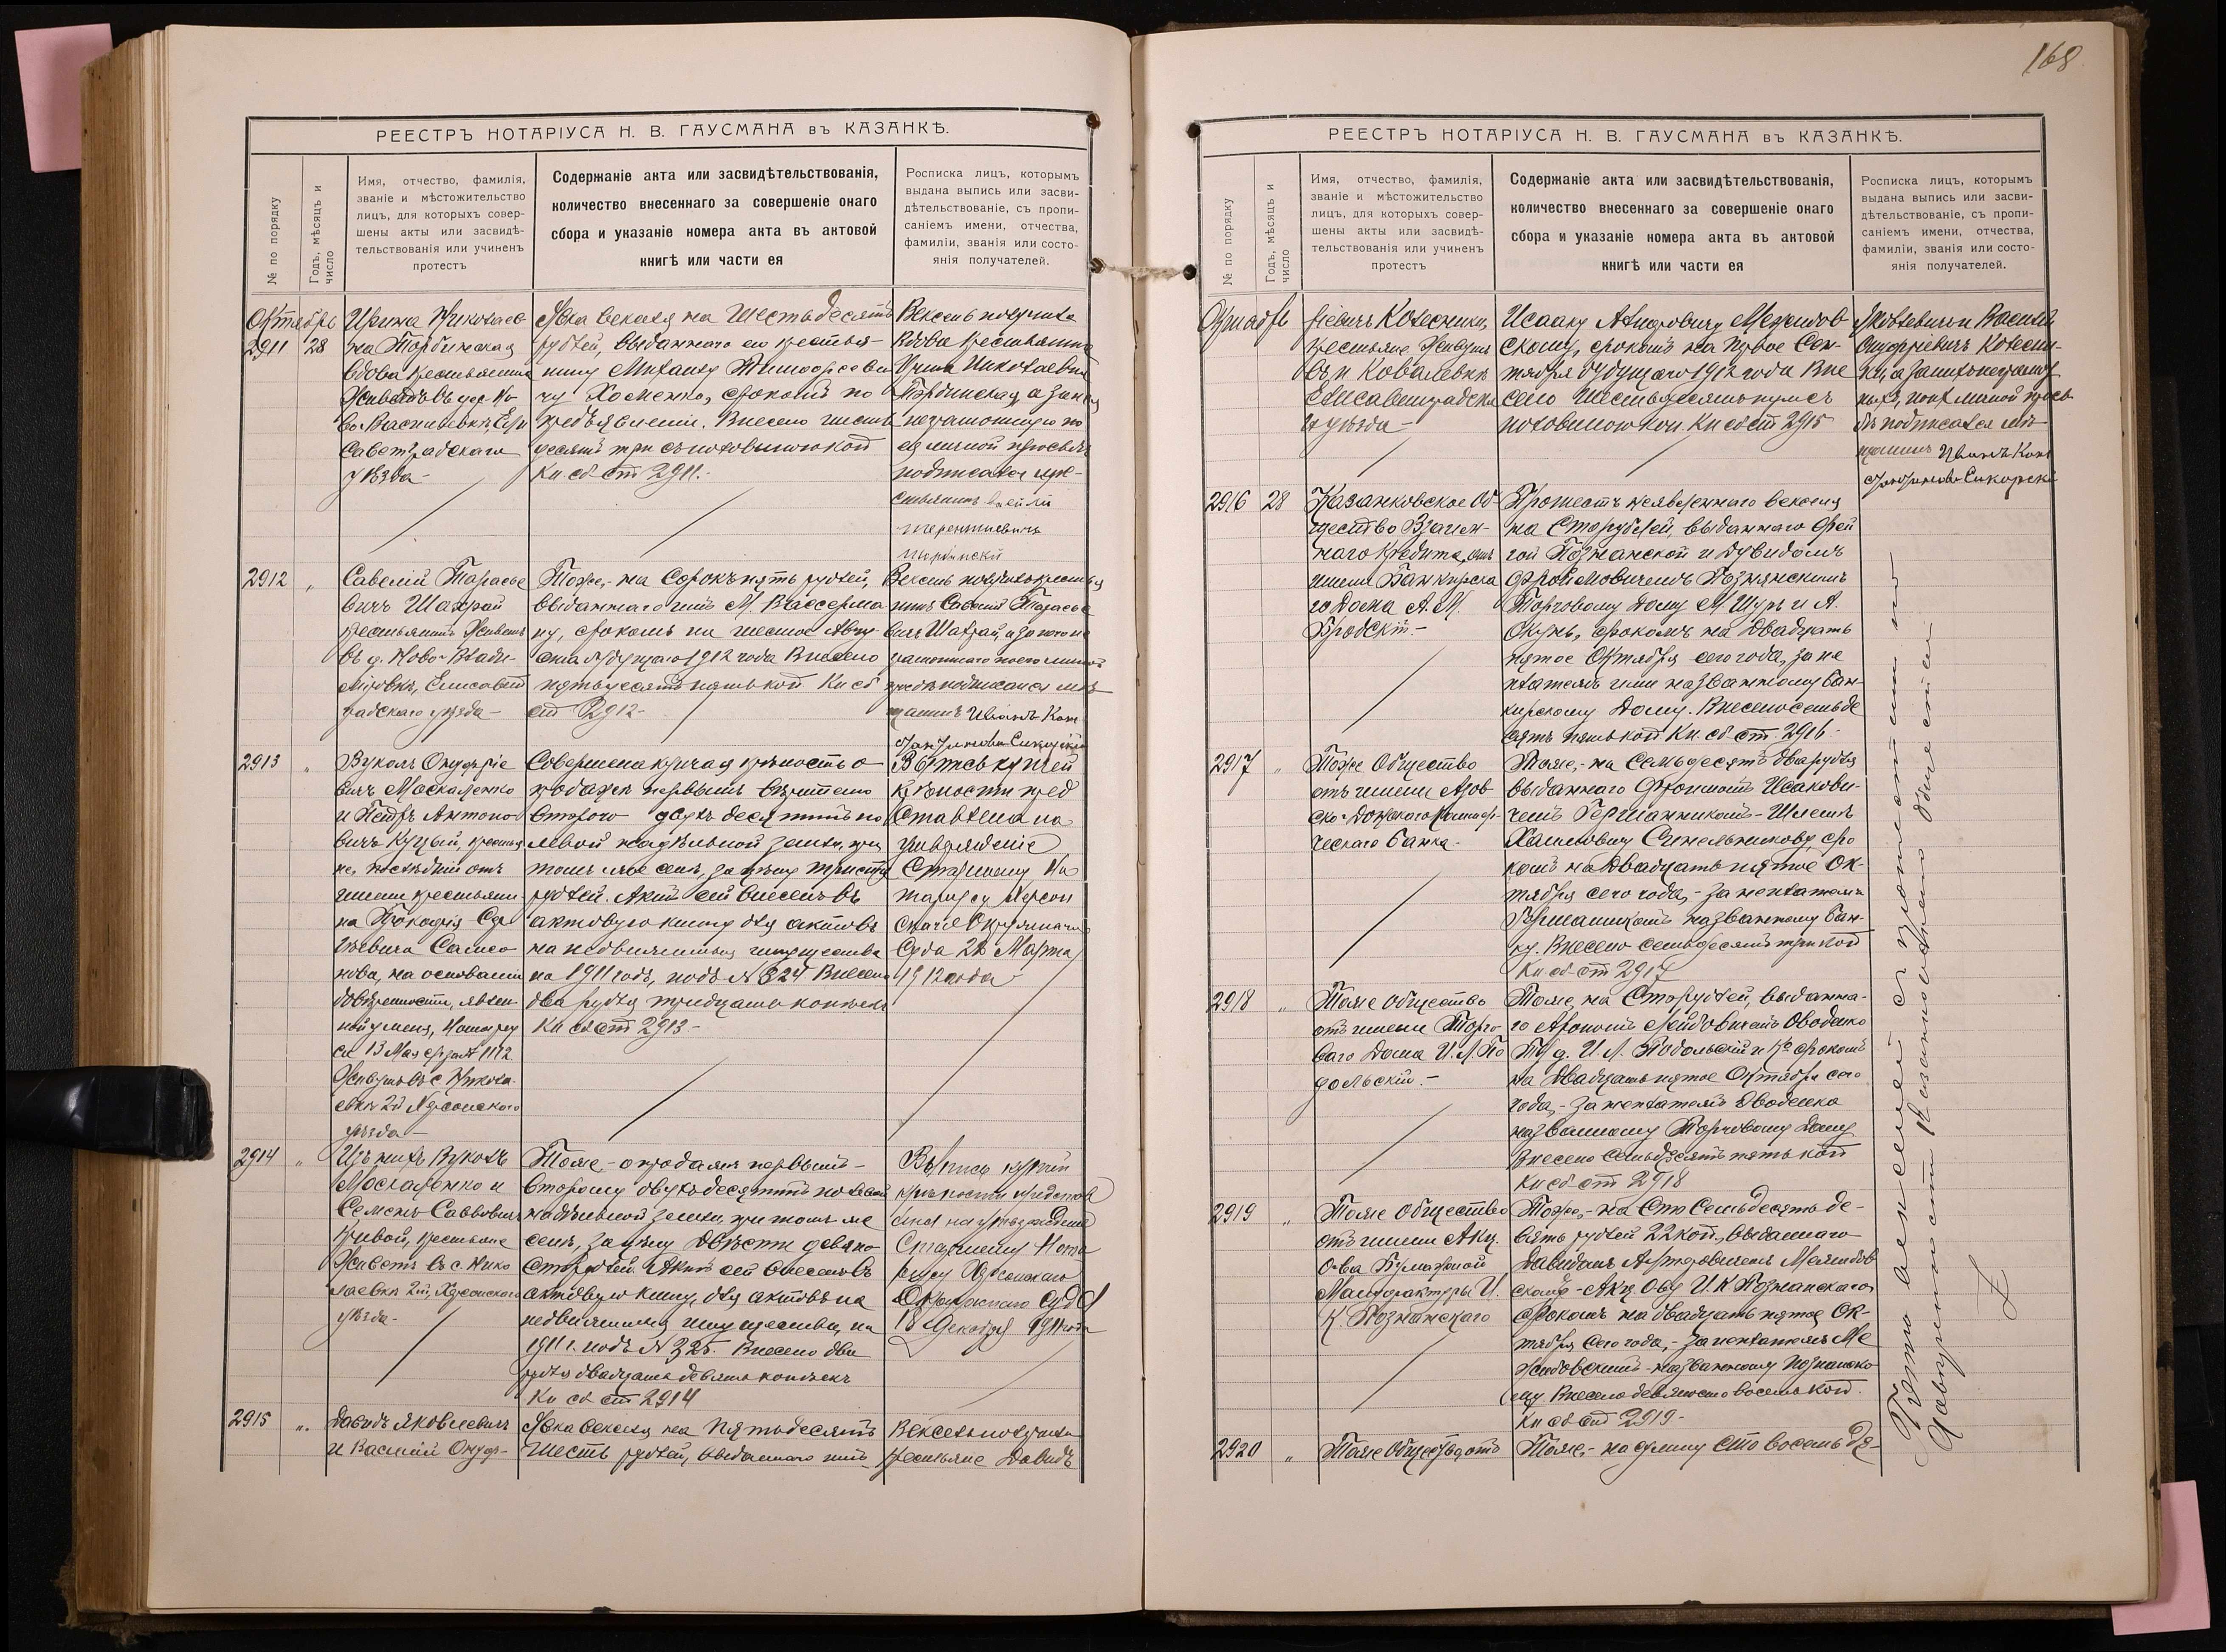 РЕЕСТРЪ НОТАРІУСА Н. В. ГАУСМАНА въ КАЗАНКѢ.
№ по порядку
Годъ, мѣсяцъ и
число
Имя, отчество, фамилія,
званіе и мѣстожительство
лицъ, для которыхъ совер-
шены акты или засвидѣ-
тельствованія или учиненъ
протестъ
Содержаніе акта или засвидѣтельствованія,
количество внесеннаго за совершеніе онаго
сбора и указаніе номера акта въ актовой
книгѣ или части ея
Росписка лицъ, которымъ
выдана выпись или засви-
дѣтельствованіе, съ пропи-
саніемъ имени, отчества,
фамиліи, званія или состо-
янія получателей.
Октябрь
2911 28
Ирина Николаев
на Торбинская
вдова крестьянина
Живетъ въ дер. Но
во Васильевкѣ, Ели
саветградскаго
уѣзда-
Явка векселя на Шестьдесятъ
рублей, выданнаго ей крестья-
нину Михаилу Тимофееви
чу Хоменко, срокомъ по
предъявленіи. Внесено шестъ
десятъ три съ половиною коп
Кн сб ст 2911.-
Вексель получила
Вдова крестьянина
Ирина Николаевна
Торбинская, а за нея
неграмотную по
ея личной просьбѣ
подписался кре-
стьянинъ
Терентіевичъ
2912 „
Савелій Тарасье
вичъ Шахрай
крестьянинъ Живетъ
въ д. Ново-Влади-
міровкѣ, Елисавет
градскаго уѣзда-
Тоже,- на Сорокъ пять рублей,
выданнаго имъ М. Вассерма
ну, срокомъ на шестое Авгу-
ста будущаго 1912 года Внесено
пятьдесятъ пять коп Кн сб
ст 2912-
Вексель получилъ крестья
нинъ Савелій Тарасье
вичъ Шахрай, а за него не
грамотнаго по его личной
просьбѣ подписался мѣ
щанинъ Иванъ Кон
стантиновъ Сикорскій
2913 „
Вуколъ Онуфріе
вичъ Москаленко
и Петръ Антоно
вичъ Куцый, крестья
не, послѣдній отъ
имени крестьяни-
на Прокофія Сер
гѣевича Самсо
нова, на основаніи
довѣренности, явлен-
ной у меня, Нотаріуса
13 Мая с/г за № 1172
Живутъ въ с Никола-
евкѣ 2й Херсонскаго
уѣзда-
Совершена купчая крѣпость о
продажѣ первымъ вѣрителю
второго двухъ десятинъ по
левой надѣльной земли, при
томъ же селѣ, за цѣну триста
рублей. Актъ сей внесенъ въ
актовую книгу для актовъ
на недвижимыя имущества
на 1911 годъ, подъ № 324 Внесено
два рубля тридцать копѣекъ
Кн сб ст 2913-
Выпись купчей
крѣпости пред
ставлена на
утвержденіе
Старшему Но
таріусу Херсон
скаго Окружнаго
Суда 22 Марта
1912 года
2914 „
Изъ нихъ Вуколъ
Москаленко и
Семенъ Саввовичъ
Кривой, крестьяне
Живетъ въ с. Нико
лаевкѣ 2й, Херсонскаго
уѣзда.-
Тоже,- о продажѣ первымъ-
второму двухъ десятинъ полевой
надѣльной земли, при томъ же
селѣ, за цѣну двѣсти девяно
сто рублей. Актъ сей внесенъ въ
актовую книгу, для актовъ на
недвижимыя имущества, на
1911 г. подъ № 325. Внесено два
рубля двадцать девять копѣекъ
Кн сб ст 2914
Выпись купчей
крѣпости представ
лена на утвержденіе
Старшему Нота
ріусу Херсонскаго
Окружнаго Суда
18 Декабря 1911 года
2915 „.
Давидъ Яковлевичъ
и Василій Онуф-
Явка векселя на Пятьдесятъ
Шесть рублей, выданнаго ими
Вексель получили
крестьяне Давидъ
168
РЕЕСТРЪ НОТАРІУСА Н. В. ГАУСМАНА въ КАЗАНКѢ.
№ по порядку
Годъ, мѣсяцъ и
число
Имя, отчество, фамилія,
званіе и мѣстожительство
лицъ, для которыхъ совер-
шены акты или засвидѣ-
тельствованія или учиненъ
протестъ
Содержаніе акта или засвидѣтельствованія,
количество внесеннаго за совершеніе онаго
сбора и указаніе номера акта въ актовой
книгѣ или части ея
Росписка лицъ, которымъ
выдана выпись или засви-
дѣтельствованіе, съ пропи-
саніемъ имени, отчества,
фамиліи, званія или состо-
янія получателей.
Октябрь
ріевичъ Колесники,
крестьяне Живутъ
въ и Ковалевкѣ
Елисаветградскаго
уѣзда-
Исааку Межидов
скому, срокомъ на Первое Сен-
тября будущаго 1912 года Вне
сено Шестьдесятъ съ
половиною коп. Кн сб ст 2915
Яковлевичъ и Василій
Онуфріевичъ Колесни-
ки, а за нихъ неграмот
ныхъ, по ихъ личной прось
бѣ подписался мѣ
щанинъ Иванъ Кон
стантиновъ Сикорскій
2916 28
Казанковское Об-
щество Взаим-
наго Кредита, отъ
имени Банкирска
го Дома А. М.
Бродскій.-
Протестъ неявленнаго векселя
на Сто рублей, выданнаго Фей
гой Познанской и Дувидомъ
Фроймовичемъ Познянскимъ
Торговому Дому М. Шуръ и А.
Окунь, срокомъ на двадцать
пятое Октября сего года, за не
платежъ ими названному Бан-
кирскому Дому. Внесено семьде
сятъ пять коп Кн. сб. ст 2916-
2917 „
Тоже Общество
отъ имени Азов
ско-Донского Коммер-
ческаго Банка-
Тоже,- на Семьдесятъ два рубля
выданнаго Фроимомъ Исакови-
чемъ Германникомъ-Шлемѣ
Хаимовичу Синельникову, сро
комъ на двадцать пятое Ок-
тября сего года,- за неплатежъ
Германникомъ названному Бан-
ку. Внесено семьдесятъ три коп
Кн сб ст 2917
2918 „
Тоже общество
отъ имени Торго-
ваго Дома И. Л. По
дольскій.-
Тоже, на Сто рублей, выданна-
го Арономъ Лейбовичемъ Оводенко
Т/д. И. Л. Подольскій и Ко срокомъ
на двадцать пятое Октября сего
года,- за неплатежъ Оводенко
названному Торговому Дому
Внесено семьдесятъ пять коп
Кн сб ст 2918
2919 „
Тоже Общество
отъ имени Акц.
О-ва Бумажной
Мануфактуры И.
К. Познанскаго
Тоже,- на Сто Семьдесятъ де-
вять рублей 22 коп., выданнаго
Давидомъ Межидов
скимъ- Акц Об-ву И. К Познанскаго
срокомъ на двадцать пятое Ок-
тября сего года,- за неплатежъ Ме
жидовскимъ- названному Познанско
му. Внесено девяносто восемь коп.
Кн сб ст 2919-
2920 „
Тоже Общество, отъ
Тоже,- на сумму Сто восемьде-